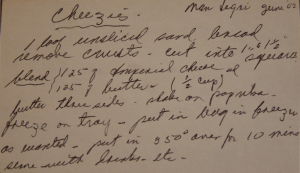 Cheezies. 
1 loaf unsliced sand. bread
remove crusts - cut into 1" x 1½" square
blend 125 g Imperial Cheese
125 g butter - ½ cup
butter three sides - shake on paprika -
freeze on tray - put in bag in freezer
as wanted - put in 350° oven for 10 mins
serve with drinks - etc.